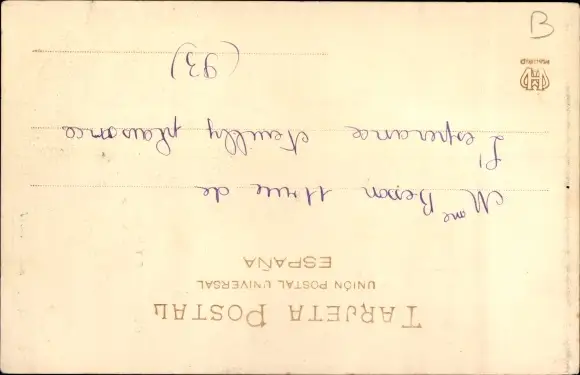 TARJETA POSTAL
UNIÓN POSTAL UNIVERSAL
ESPAÑA
Mme Besson 11 rue de
L'esperance Neuilly plaisance
(93)
MADRID
B